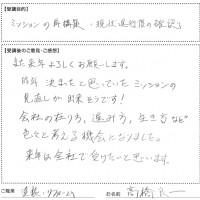 【受講目的】
ミッションの再構築・現状進行度の確認
【受講後のご意見・ご感想】
また来年よろしくお願いします。
昨年決まったと思っていたミッションの
見直しが出来そうです!
会社の在り方、進み方、生き方など
色々と考える機会になりました。
来年は会社で受けたいと思います。
ご職業
お名前 高橋